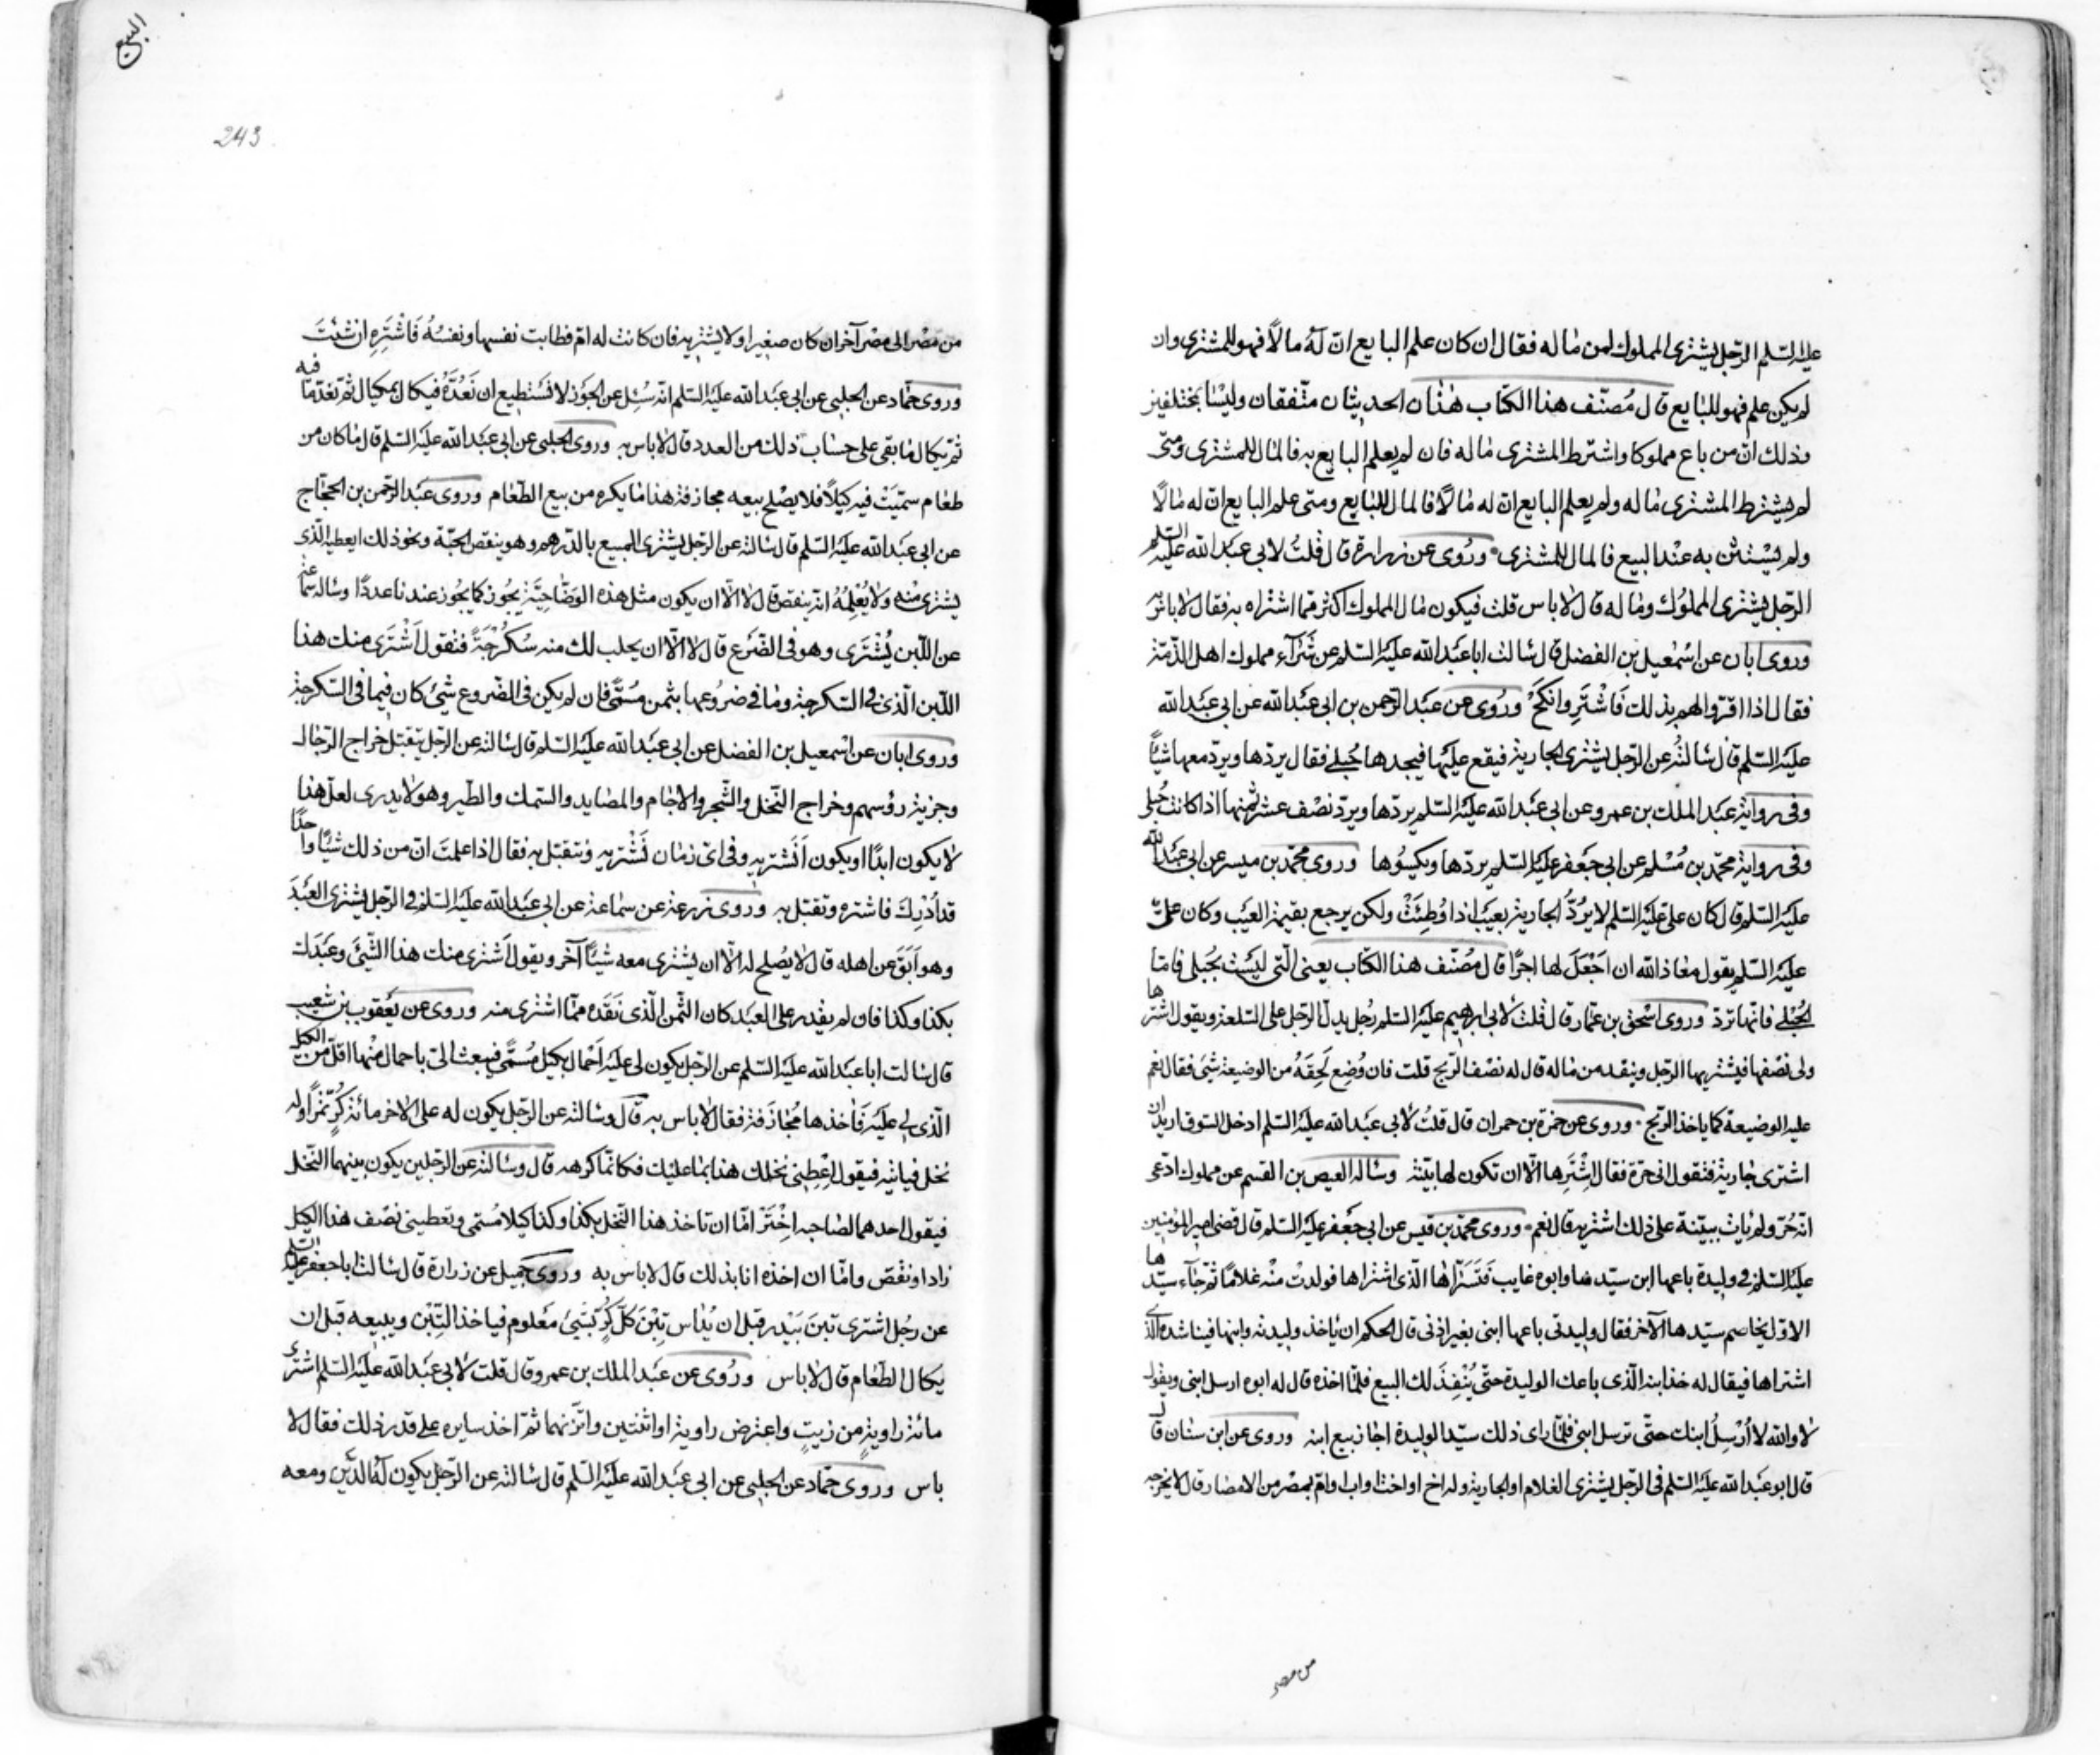 عليه السّلم الرّجل يشترى المملوك لمن ماله فقال ان كان علم البايع انّ له مالاً فهو للمشترى وان
لم يكن علم فهو للبايع قال مُصنّف هذا الكتاب هذان الحديثان متّفقان وليسا بمختلفين
وذلك انّ من باع مملوكا واشترط المشترى ماله فان لم يعلم البايع به فالمال للمشترى ومتى
لم يشترط المشترى ماله ولم يعلم البايع انّ له مالاً فالمال للبايع ومتى علم البايع انّ له مالاً
ولم يستثن به عند البيع فالمال للمشترى وروى عن زرارة قال قلتُ لابى عبد الله عليه السّلم
الرّجل يشترى المملوك وماله قال لا باس قلت فيكون مال المملوك اكثر ممّا اشتراه به فقال لا باس
وروى ابان عن اسمعيل بن الفضل قال سالت ابا عبد الله عليه السّلم عن شرآء مملوك اهل الذمّة
فقال اذا اقرّوا لهم بذلك فاشترِ وانكح وروى عن عبد الرّحمن بن ابى عبد الله عن ابى عبد الله
عليه السّلم قال سالته عن الرّجل يشترى الجارية فيقع عليها فيجدها حُبلى فقال يردّها ويردّ معها شيئاً
وفى رواية عبد الملك بن عمرو عن ابى عبد الله عليه السّلم يردّها ويردّ نصف عشر ثمنها اذا كانت حُبلى
وفى رواية محمّد بن مُسْلم عن ابى جعفر عليه السّلم يردّها ويكسُوها وروى محمّد بن ميسر عن ابى عبد الله
عليه السّلم قال كان علىّ عليه السّلم لا يَرُدُّ الجارية بعيب اذا وُطِئَتْ ولكن يرجع بقيمة العيب وكان علىّ
عليه السّلم يقول معاذ الله ان اجْعَلَ لها اجرًا قال مُصَنّف هذا الكتاب يعنى الّتى ليست بحُبلى فامّا
الحُبْلى فانّها تردّ وروى اسْحق بن عمّار قال قلت لابى ابرهيم عليه السّلم رجُل يدلّ الرّجل على السّلعة ويقول اشترها
ولى نصفها فيشتريها الرّجل وينقد من ماله قال له نصْف الرّبح قلت فان وُضِع لَحِقَهُ من الوضيعة شئ فقال نعم
عليه الوضيعة كما ياخذ الرّبح وروى عن حمزة بن حمران قال قلتُ لابى عبد الله عليه السّلم ادخل السّوق اريد ان
اشترى جارية فتقول انى حرّة فقال اشْتَرِها الاّ ان تكون لها بيّنة وساله العيص بن القسم عن مملوك ادّعى
انّه حُرّ ولم يات ببيّنة على ذلك اشتريه قال نعم وروى محمّد بن قيس عن ابى جعفر عليه السّلم قال قضى امير المؤمنين
عليه السّلم فى وليدة باعها ابن سيّدها وابوه غايب فتسرّاها الّذى اشتراها فولدت منْه غلامًا ثمّ جآء سيّدها
الاوّل يخاصم سيّدها الآخر فقال وليدتى باعها ابنى بغير اذنى قال الحكم ان ياخذ وليدته وابنها فيناشده الّذى
اشتراها فيقال له خذ ابنه الّذى باعك الوليدة حتّى يُنْفِذَ لك البيع فلمّا اخذه قال له ابوه ارسل ابنى ويقول
لا والله لا اُرْسِلُ ابنك حتّى ترسل ابنى فلمّا راى ذلك سيّد الوليدة اجاز بيع ابنه وروى عن ابن سنان قال
قال ابو عبد الله عليه السّلم فى الرّجل يشترى الغلام او الجارية وله اخ او اخت او اب او امّ بمصْر من الامصار قال لا يخرجه
من مصر
البيع
243
من مصْر الى مصْر آخر ان كان صغيرا ولا يشتريه فان كانت له امّ فطابت نفسها ونفسُهُ فَاشْتَرِهِ ان شئتَ
وروى حمّاد عن الحلبى عن ابى عبد الله عليه السّلم انّه سُئِل عن الجَوْز لا نستطيع ان نَعُدَّهُ فيكال بمكيال ثمّ يعدّ ما فيه
ثمّ يكال ما بقى على حساب ذلك من العدد قال لا باس به وروى الحلبى عن ابى عبد الله عليه السّلم قال ما كان من
طعام سمّيتَ فيه كيلاً فلا يصْلح بيعه مجازفة هذا ما يكره من بيع الطّعام وروى عبد الرّحمن بن الحجّاج
عن ابى عبد الله عليه السّلم قال سالته عن الرّجل يشترى المبيع بالدّرهم وهو ينقص الحبّة ونحو ذلك ايعطيه الّذى
يشترى منه ولا يُعْلِمُهُ انّه ينقص قال لا الاّ ان يكون مثل هذه الوَضّاحِيّة يجُوز كما يجُوز عندنا عددًا وساله سماعة
عن اللّبن يُشْتَرَى وهو فى الضّرع قال لا الاّ ان يحلب لك منه سُكُرُّجَةً فتقول اَشْتَرى منك هذا
اللّبن الّذى فى السّكرجة وما فى ضروعها بثمن مُسَمّى فان لم يكن فى الضّروع شئ كان فيما فى السّكرجة
وروى ابان عن اسْمعيل بن الفضل عن ابى عبد الله عليه السّلم قال سالته عن الرّجل يتقبّل خراج الرّجال
وجزية رؤسهم وخراج النّخل والشّجر والاجام والمصايد والسّمك والطّير وهو لا يدرى لعلّ هذا
لا يكون ابدًا او يكون اَنشتريه وفى اىّ زمان نَشْتريه ونتقبّل به فقال اذا علمت انّ من ذلك شيئا واحدًا
قد اُدْرِكَ فاشتره وتقبّل به وروى زرعة عن سماعة عن ابى عبد الله عليه السّلم فى الرّجل يشترى العَبْدَ
وهو آبق عن اهله قال لا يصْلح له الاّ ان يشترى معه شيئاً آخر ويقول اَشترى منك هذا الشّئ وعَبْدَك
بكذا وكذا فان لم يقدر على العبد كان الثّمن الّذى نَقَدَه ممّا اشترى منه وروى عن يعقوب بن شعيب
قال سالت ابا عبد الله عليه السّلم عن الرّجل يكون لى عليه اَحْمال بكيل مُسَمّى فيبعث الىّ باحمال منْها اقلّ من الكيل
الّذى لى عليه فَآخذها مُجازَفة فقال لا باس به قال وسالته عن الرّجل يكون له على الآخر مائة كُرّ تمرًا وله
نخل فياتيه فيقول اعْطِنى نخلك هذا بما عليك فكانّما كرهه قال وسالته عن الرّجلين يكون بينهما النّخل
فيقول احدهما لصاحبه اِخْتَرْ امّا ان تاخذ هذا النّخل بكذا وكذا كيلا مُسمّى وتعطينى نصْف هذا الكيل
زاد او نقص وامّا ان اخذه انا بذلك قال لا باس به وروى جميل عن زرارة قال سالت ابا جعفر عليه السّلم
عن رجُل اشترى تبن بَيْدر قبل ان يُداس تِبْنَ كلّ كُرّ بشئ معلوم فياخذ التّبْن ويبيعه قبل ان
يكال الطّعام قال لا باس وروى عن عبد الملك بن عمرو قال قلت لابى عبد الله عليه السّلم اشترى
مائة راويةٍ من زيتٍ واعترض راوية او اثنتين واتّزنهما ثمّ اخذ سايره على قدر ذلك فقال لا
باس وروى حمّاد عن الحلبى عن ابى عبد الله عليه السّلم قال سالته عن الرّجل يكون له الدَّين ومعه